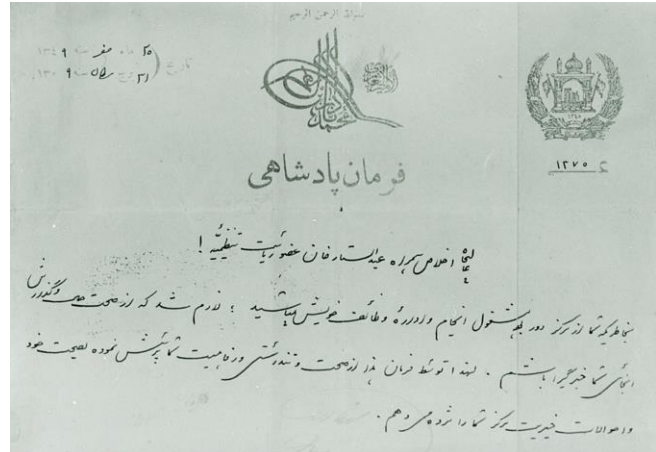 بسم الله الرحمن الرحیم
۲۵ ماه صفر سنه ۱۳۴۹
۳۱ سرطان سنه ۱۳۰۹
تاریخ
۱۲۷۵
فرمان پادشاهی
اخلاص همراه عبدالستار خان عضو ریاست تنظیمیه !
بخاطریکه شما از مرکز دور بوده مشغول انجام و اداره وظائف خویش میباشید ؛ لازم شد که از صحت و گذارش
اینجائی شما خبرگیرا باشم . لهذا توسط فرمان هذا از صحت و تندرستی و رفاهیت شما پرسش نموده بصحت خود
و احوالات خیریت مرکز شما را مژده می دهم .